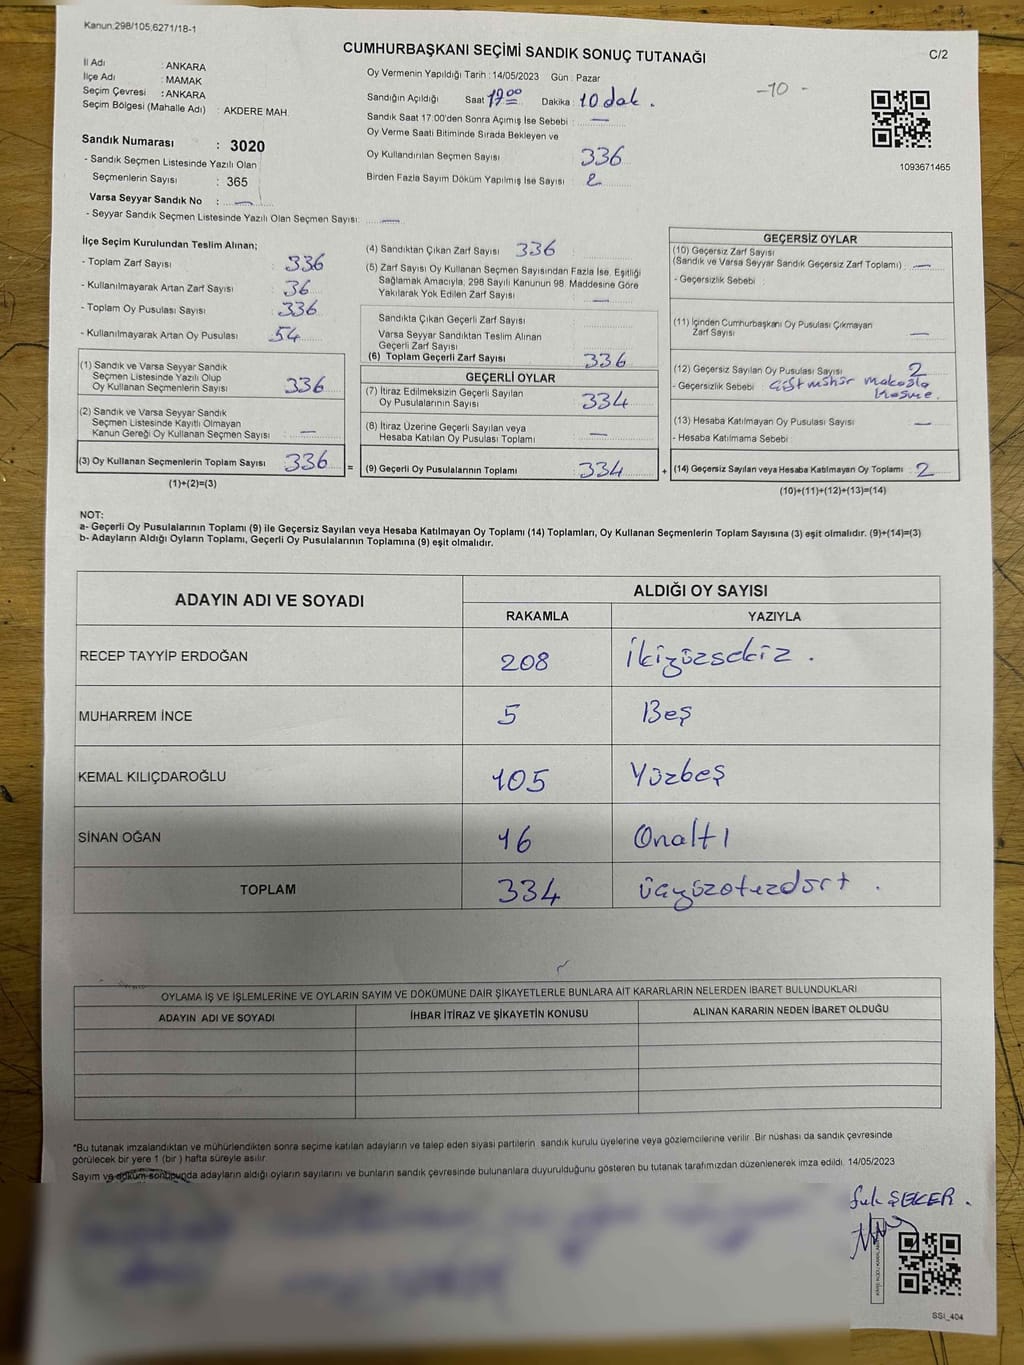 Kanun,298/105,6271/18-1
CUMHURBAŞKANI SEÇİMİ SANDIK SONUÇ TUTANAĞI
C/2
İl Adı : ANKARA
İlçe Adı : MAMAK
Seçim Çevresi : ANKARA
Seçim Bölgesi (Mahalle Adı) : AKDERE MAH.
Oy Vermenin Yapıldığı Tarih : 14/05/2023 Gün : Pazar
Sandığın Açıldığı Saat Dakika : 10 dak.
Sandık Saat 17:00'den Sonra Açımış İse Sebebi : —
Oy Verme Saati Bitiminde Sırada Bekleyen ve
Oy Kullandırılan Seçmen Sayısı 336
Birden Fazla Sayım Döküm Yapılmış İse Sayısı 2
-10-
1093671465
Sandık Numarası : 3020
- Sandık Seçmen Listesinde Yazılı Olan
Seçmenlerin Sayısı : 365
Varsa Seyyar Sandık No : —
- Seyyar Sandık Seçmen Listesinde Yazılı Olan Seçmen Sayısı: —
İlçe Seçim Kurulundan Teslim Alınan;
- Toplam Zarf Sayısı : 336
- Kullanılmayarak Artan Zarf Sayısı : 36
- Toplam Oy Pusulası Sayısı : 336
- Kullanılmayarak Artan Oy Pusulası : 54
(1) Sandık ve Varsa Seyyar Sandık
Seçmen Listesinde Yazılı Olup
Oy Kullanan Seçmenlerin Sayısı : 336
(2) Sandık ve Varsa Seyyar Sandık
Seçmen Listesinde Kayıtlı Olmayan
Kanun Gereği Oy Kullanan Seçmen Sayısı : —
(3) Oy Kullanan Seçmenlerin Toplam Sayısı : 336
(1)+(2)=(3)
(4) Sandıktan Çıkan Zarf Sayısı 336
(5) Zarf Sayısı Oy Kullanan Seçmen Sayısından Fazla İse, Eşitliği
Sağlamak Amacıyla, 298 Sayılı Kanunun 98. Maddesine Göre
Yakılarak Yok Edilen Zarf Sayısı : —
Sandıkta Çıkan Geçerli Zarf Sayısı
Varsa Seyyar Sandıktan Teslim Alınan
Geçerli Zarf Sayısı
(6) Toplam Geçerli Zarf Sayısı 336
GEÇERLİ OYLAR
(7) İtiraz Edilmeksizin Geçerli Sayılan
Oy Pusulalarının Sayısı : 334
(8) İtiraz Üzerine Geçerli Sayılan veya
Hesaba Katılan Oy Pusulası Toplamı : —
= (9) Geçerli Oy Pusulalarının Toplamı : 334
GEÇERSİZ OYLAR
(10) Geçersiz Zarf Sayısı
(Sandık ve Varsa Seyyar Sandık Geçersiz Zarf Toplamı) : —
- Geçersizlik Sebebi :
(11) İçinden Cumhurbaşkanı Oy Pusulası Çıkmayan
Zarf Sayısı —
(12) Geçersiz Sayılan Oy Pusulası Sayısı 2
- Geçersizlik Sebebi : Çift mühür
(13) Hesaba Katılmayan Oy Pusulası Sayısı —
- Hesaba Katılmama Sebebi
+ (14) Geçersiz Sayılan veya Hesaba Katılmayan Oy Toplamı : 2
(10)+(11)+(12)+(13)=(14)
NOT:
a- Geçerli Oy Pusulalarının Toplamı (9) ile Geçersiz Sayılan veya Hesaba Katılmayan Oy Toplamı (14) Toplamları, Oy Kullanan Seçmenlerin Toplam Sayısına (3) eşit olmalıdır. (9)+(14)=(3)
b- Adayların Aldığı Oyların Toplamı, Geçerli Oy Pusulalarının Toplamına (9) eşit olmalıdır.
ADAYIN ADI VE SOYADI
ALDIĞI OY SAYISI
RAKAMLA YAZIYLA
RECEP TAYYİP ERDOĞAN 208 İkiyüzsekiz.
MUHARREM İNCE 5 Beş
KEMAL KILIÇDAROĞLU 105 Yüzbeş
SİNAN OĞAN 16 Onaltı
TOPLAM 334 üçyüzotuzdört.
OYLAMA İŞ VE İŞLEMLERİNE VE OYLARIN SAYIM VE DÖKÜMÜNE DAİR ŞİKAYETLERLE BUNLARA AİT KARARLARIN NELERDEN İBARET BULUNDUKLARI
ADAYIN ADI VE SOYADI İHBAR İTİRAZ VE ŞİKAYETİN KONUSU ALINAN KARARIN NEDEN İBARET OLDUĞU
*Bu tutanak imzalandıktan ve mühürlendikten sonra seçime katılan adayların ve talep eden siyasi partilerin sandık kurulu üyelerine veya gözlemcilerine verilir. Bir nüshası da sandık çevresinde
görülecek bir yere 1 (bir ) hafta süreyle asılır.
Sayım ve döküm sonucunda adayların aldığı oyların sayılarını ve bunların sandık çevresinde bulunanlara duyurulduğunu gösteren bu tutanak tarafımızdan düzenlenerek imza edildi. 14/05/2023
ŞEKER.
SSI_404